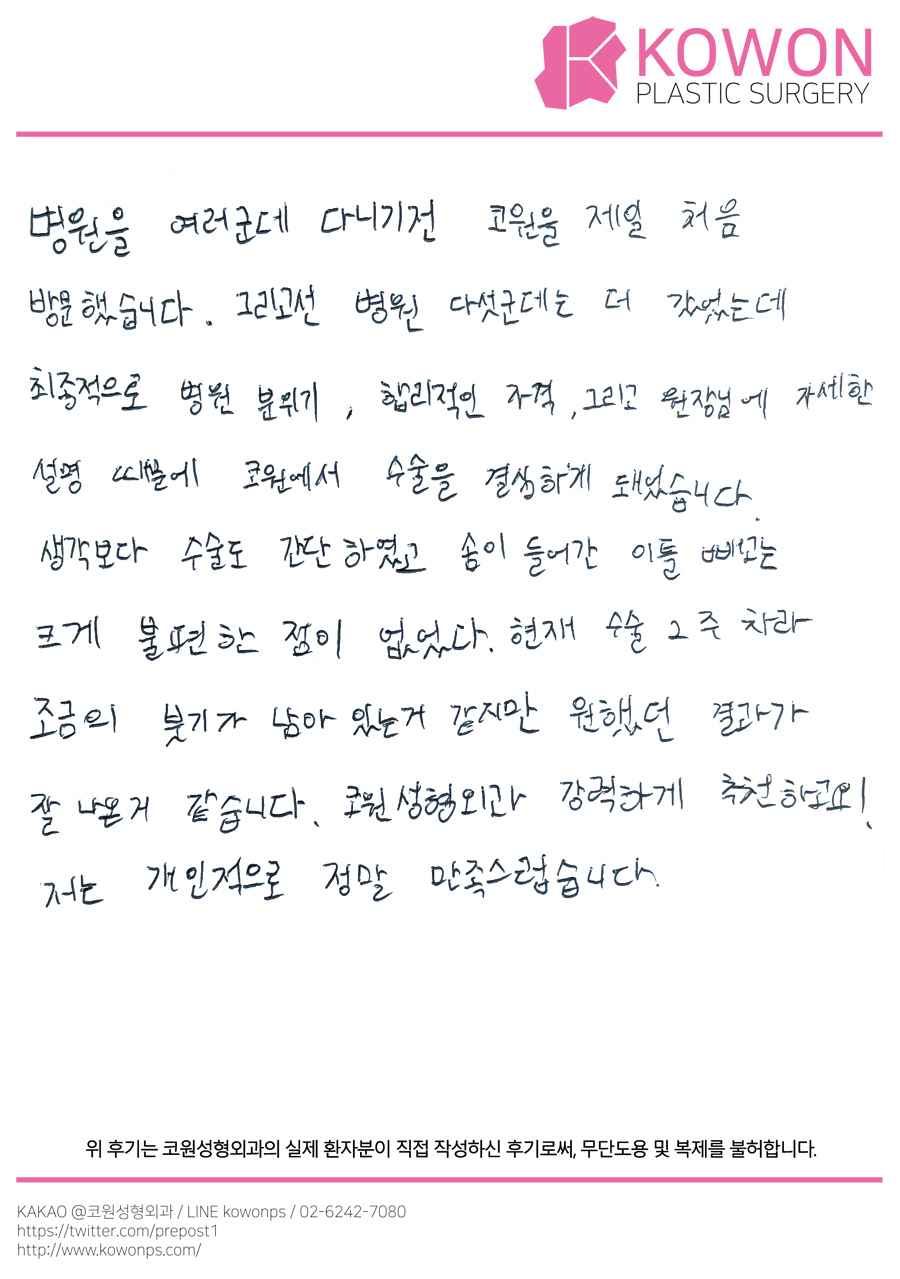 KOWON
PLASTIC SURGERY
병원을 여러군데 다니기전 코원을 제일 처음
방문했습니다. 그리고선 병원 다섯군데는 더 갔었는데
최종적으로 병원 분위기, 합리적인 가격, 그리고 원장님에 자세한
설명 때문에 코원에서 수술을 결심하게 돼었습니다.
생각보다 수술도 간단하였고 솜이 들어간 이틀 빼고는
크게 불편한 점이 없었다. 현재 수술 2주 차라
조금의 붓기가 남아 있는거 같지만 원했던 결과가
잘 나온거 같습니다. 코원성형외과 강력하게 추천하고요!
저는 개인적으로 정말 만족스럽습니다.
위 후기는 코원성형외과의 실제 환자분이 직접 작성하신 후기로써, 무단도용 및 복제를 불허합니다.
KAKAO @코원성형외과 / LINE kowonps / 02-6242-7080
https://twitter.com/prepost1
http://www.kowonps.com/